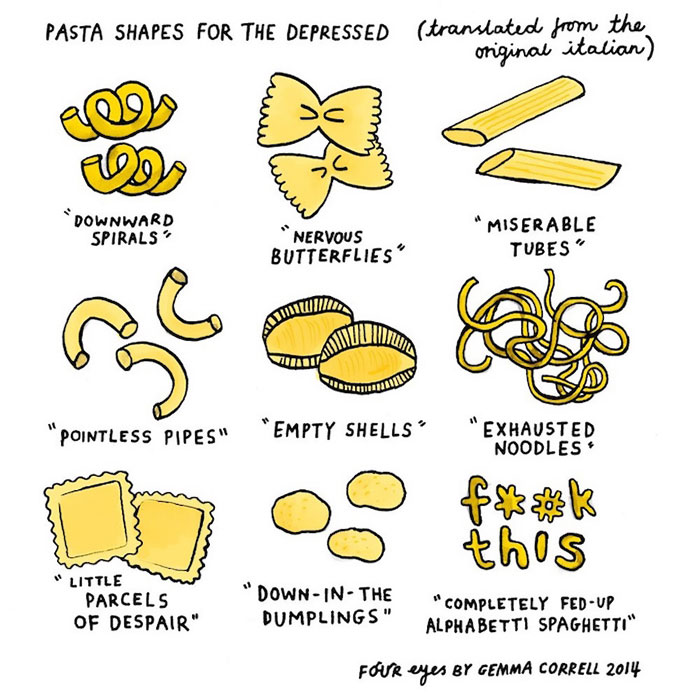 PASTA SHAPES FOR THE DEPRESSED (translated from the
original italian)
"DOWNWARD
SPIRALS"
"NERVOUS
BUTTERFLIES"
"MISERABLE
TUBES"
"POINTLESS PIPES"
"EMPTY SHELLS"
"EXHAUSTED
NOODLES"
"LITTLE
PARCELS
OF DESPAIR"
"DOWN-IN-THE
DUMPLINGS"
f**#k
this
"COMPLETELY FED-UP
ALPHABETTI SPAGHETTI"
FOUR eyes BY GEMMA CORRELL 2014